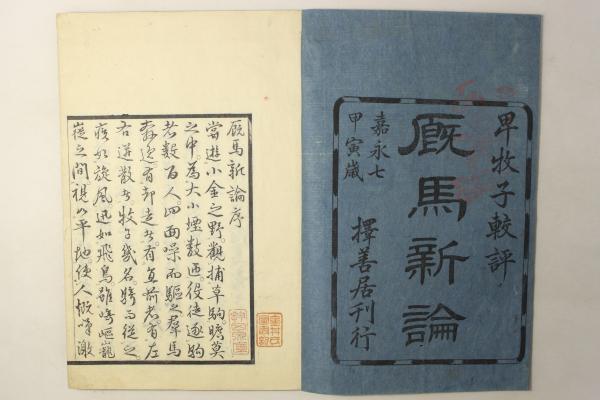 卑牧子較評
廐馬新論
嘉永七
甲寅歳
擇善居刊行
廐馬新論序
嘗遊小金之野觀捕草駒曠莫
之中爲大小堙數匝役徒逐駒
者數百人四面噪而驅之群馬
奔逸有却走者有直前者有左
右逆散者牧子幾名騎而從之
疾如旋風迅如飛鳥雖崎嶇巃
嵸之間視如平地使人慨嘆激